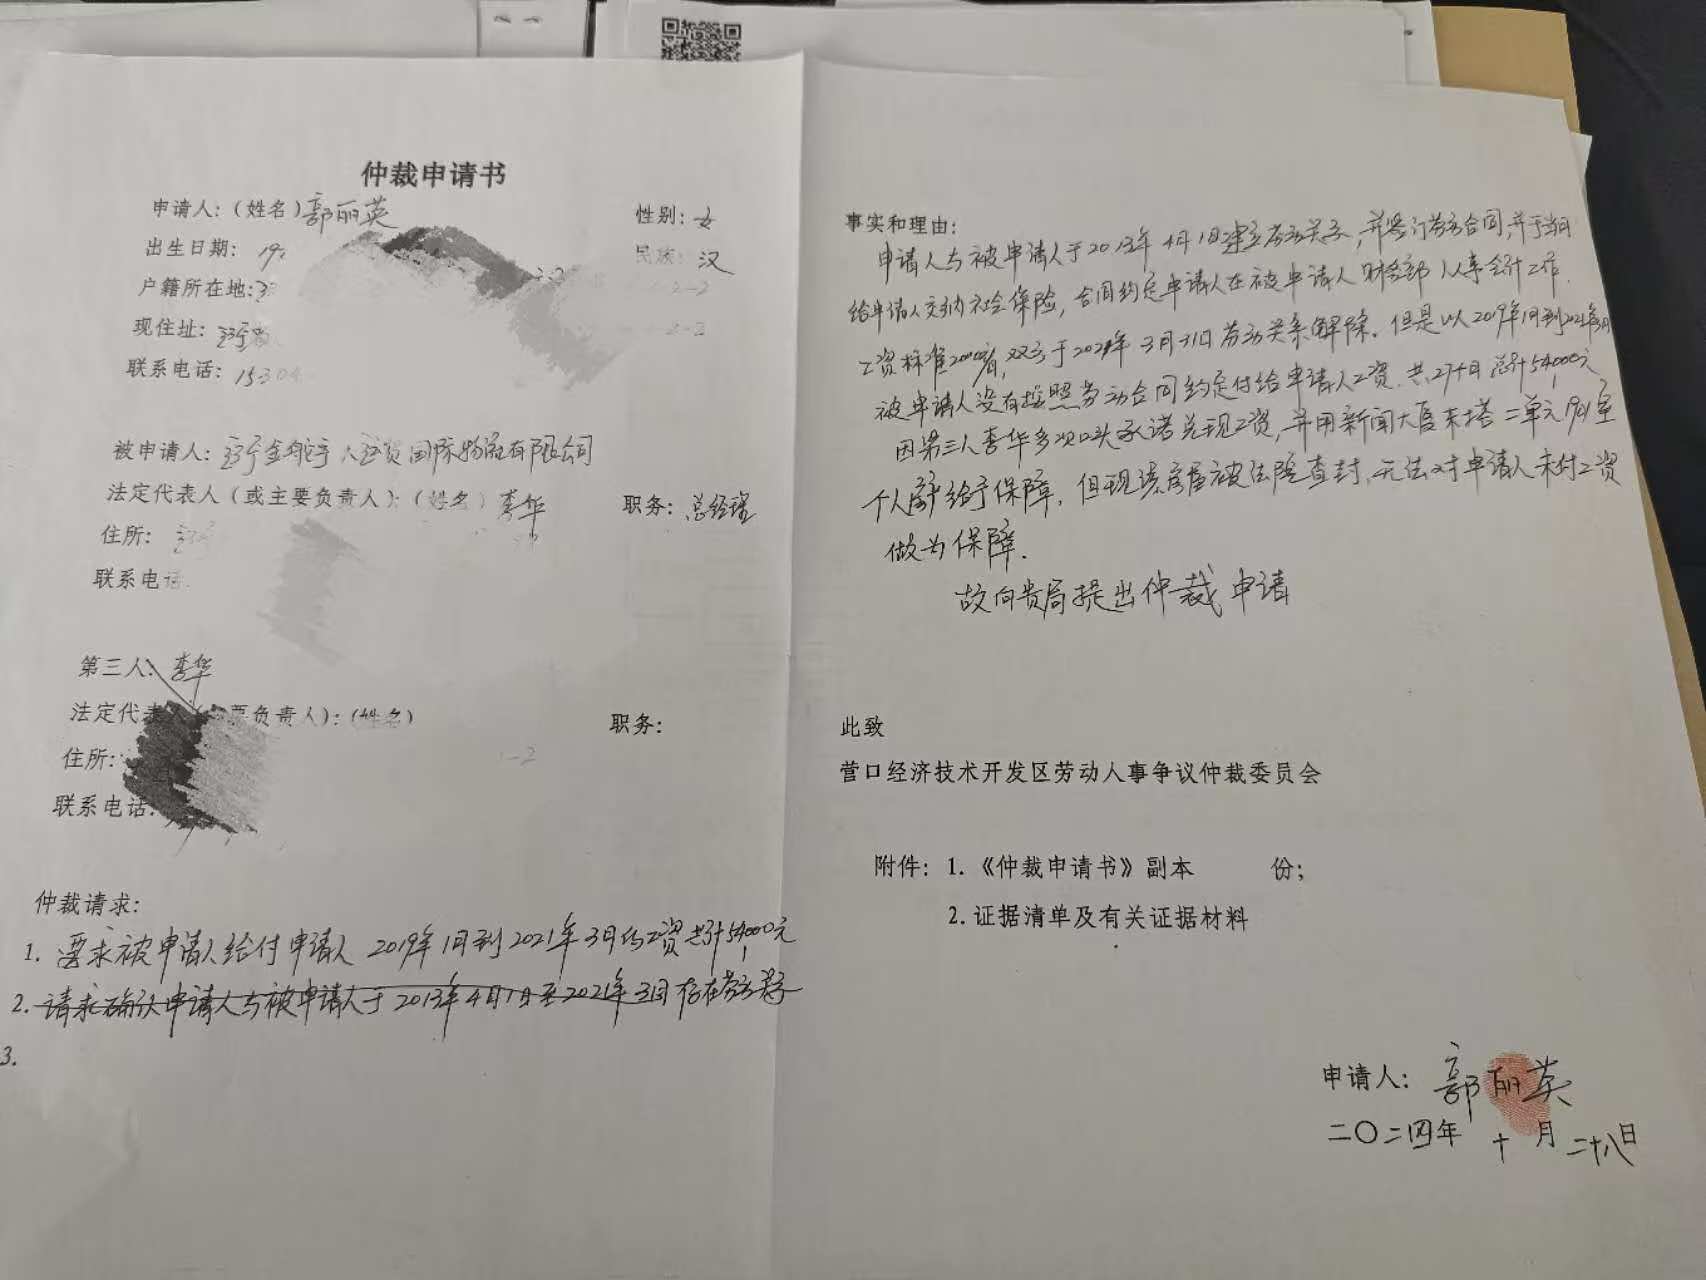 仲裁申请书
申请人：（姓名）郭丽英 性别：女
出生日期：19 民族：汉
户籍所在地：
现住址：
联系电话：15304
被申请人：金 国际物流有限公司
法定代表人（或主要负责人）：（姓名）李华 职务：总经理
住所：
联系电话
第三人：李华
法定代表 要负责人）：（姓名） 职务：
住所：
联系电话：
仲裁请求：
1. 要求被申请人给付申请人2019年1月到2021年3月的工资共计54,000元
2. 请求确认申请人与被申请人于2013年4月1日至2021年3月存在劳动关系
3.
事实和理由：
申请人与被申请人于2013年4月1日建立劳动关系，并签订劳动合同，并于当月
给申请人交纳社会保险，合同约定申请人在被申请人财务部从事会计工作.
工资标准2000元/月，双方于2021年3月31日劳动关系解除。但是从2019年1月到2021年3月
被申请人没有按照劳动合同约定付给申请人工资.共27个月总计54,000元
因第三人李华多次口头承诺兑现工资，并用新闻大厦东塔二单元 室
个人房产给予保障.但现该房屋被法院查封，无法对申请人未付工资
做为保障.
故向贵局提出仲裁申请
此致
营口经济技术开发区劳动人事争议仲裁委员会
附件：1.《仲裁申请书》副本 份；
2.证据清单及有关证据材料
申请人：郭丽英
二〇二四年 十 月 二十八日